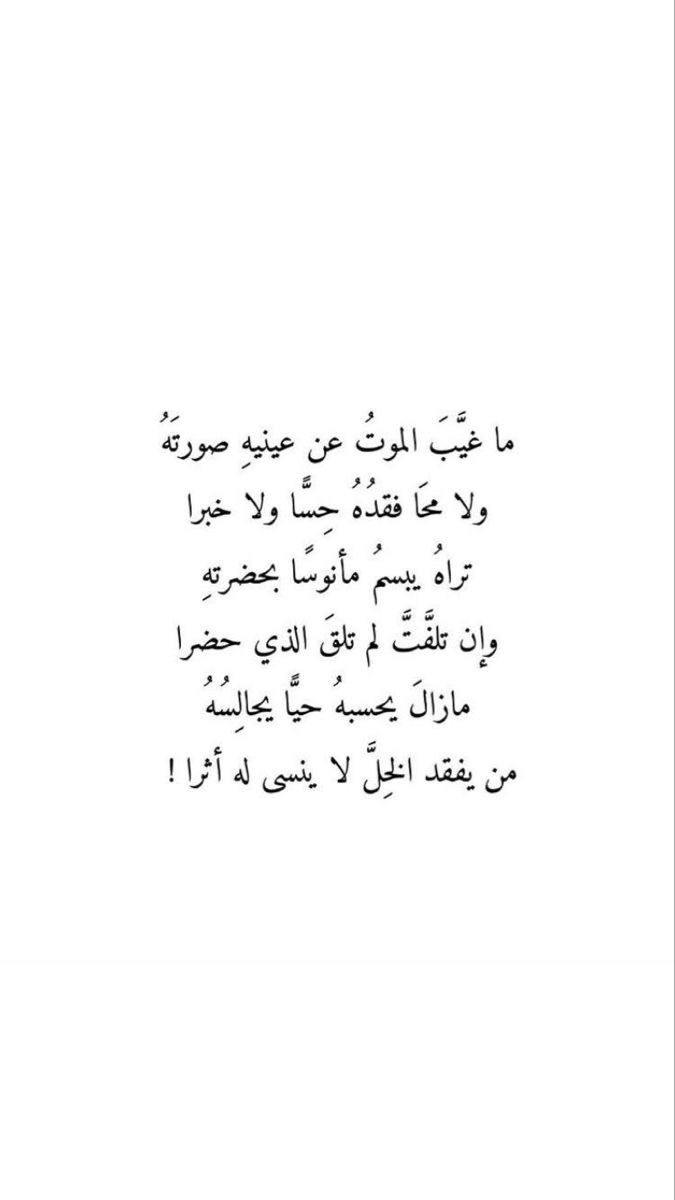 ما غيَّبَ الموتُ عن عينيهِ صورتَهُ
ولا محَا فقدُهُ حِسًّا ولا خبرا
تراهُ يبسمُ مأنوسًا بحضرتهِ
وإن تلفَّتَّ لم تلقَ الذي حضرا
مازالَ يحسبهُ حيًّا يجالِسُهُ
من يفقد الخِلَّ لا ينسى له أثرا !